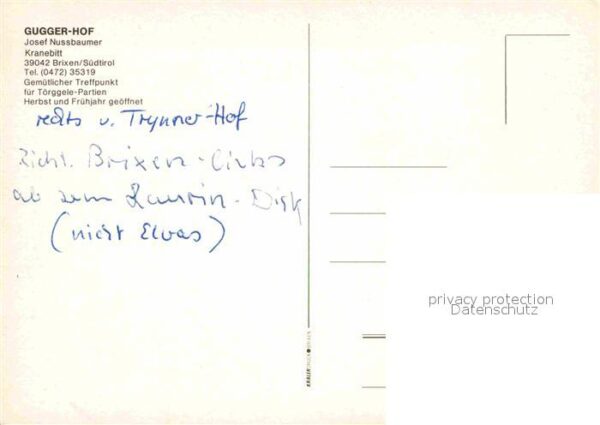 GUGGER-HOF
Josef Nussbaumer
Kranebitt
39042 Brixen/Südtirol
Tel. (0472) 35319
Gemütlicher Treffpunkt
für Törggele-Partien
Herbst und Frühjahr geöffnet
rechts v. Hof
Richt. Brixen - links
ab zum - Disk
(nicht Elvas)
privacy protection
Datenschutz